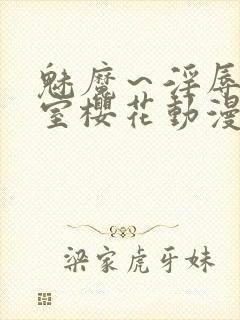 魅魔~淫辱
室樱花動漫
梁家虎牙妹